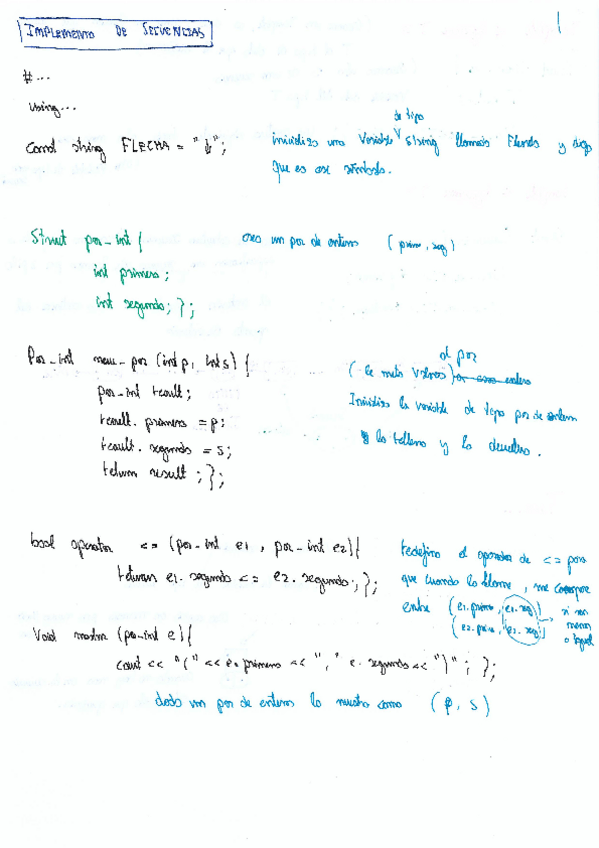 IMPLEMENTO DE SECUENCIAS
1
# ...
using...
Const string FLECHA = "↓";
inicializo una Variable de tipo string llamada Flecha y digo
que es ese símbolo.
Struct par_int {
int primero;
int segundo; };
creo un par de enteros (prim, seg)
Par_int meu_par (int p, int s) {
par_int result;
result. primero = p;
result. segundo = s;
return result ; };
(le meto valores) al par
Inicializo la variable de tipo par de enteros
y la relleno y lo devuelvo.
bool operator <= (par_int e1 , par_int e2) {
return e1. segundo <= e2. segundo; };
redefino el operador de <= para
que cuando lo llame, me compare
entre (e1.primo, e1.seg)
(e2.prim, e2.seg)
si son
menor
o igual
Void mostrar (par_int e) {
cout << "(" << e. primero << "," e. segundo << ")" ; };
dado un par de enteros lo muestro como (p, s)